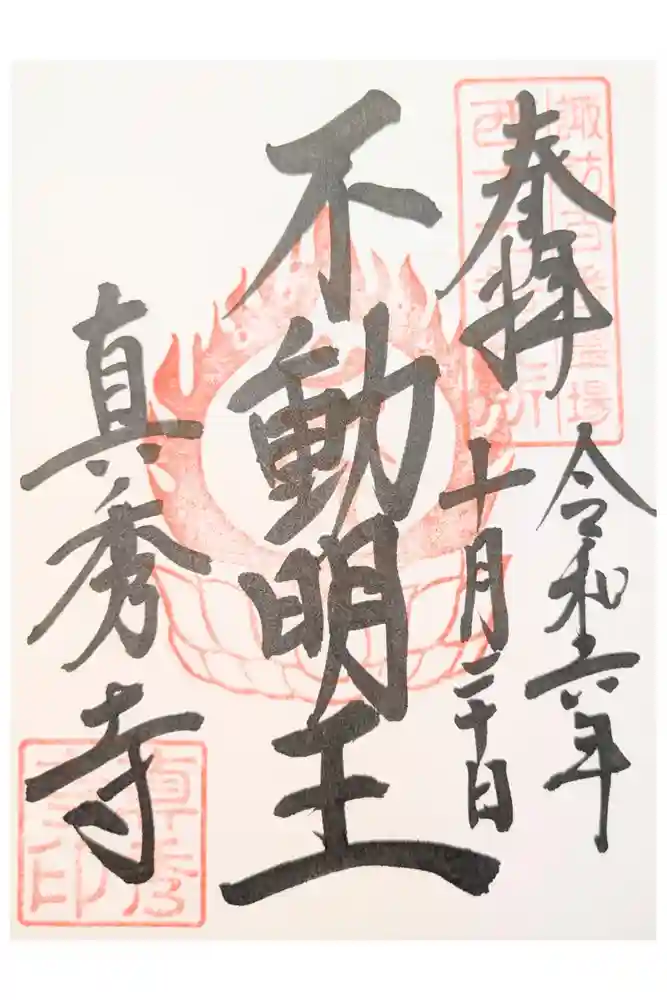 奉拝
令和六年
十月二十日
不動明王
真秀寺
諏訪百番霊場
真秀寺印